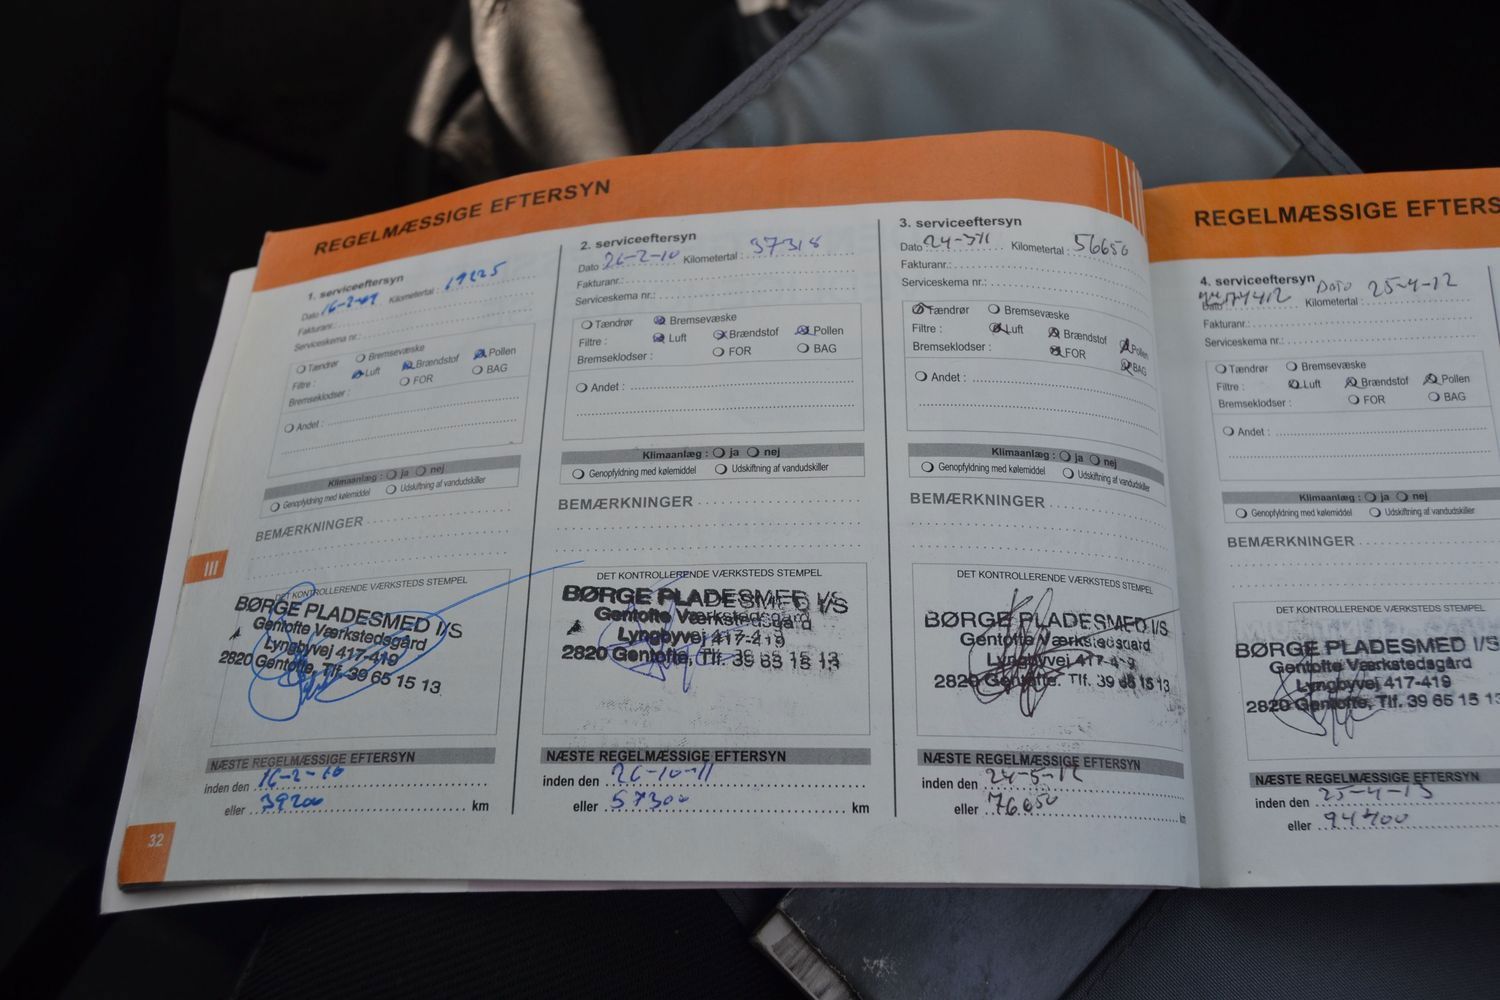 REGELMÆSSIGE EFTERSYN
1. serviceeftersyn
Dato 16-2-09 Kilometertal : 19225
Fakturanr.:
Serviceskema nr.:
Tændrør Bremsevæske
Filtre : Luft Brændstof Pollen
Bremseklodser : FOR BAG
Andet :
Klimaanlæg : ja nej
Genopfyldning med kølemiddel Udskiftning af vandudskiller
BEMÆRKNINGER
DET KONTROLLERENDE VÆRKSTEDS STEMPEL
BØRGE PLADESMED I/S
Gentofte Værkstedsgård
Lyngbyvej 417-419
2820 Gentofte, Tlf. 39 65 15 13
NÆSTE REGELMÆSSIGE EFTERSYN
inden den 16-2-10
eller 39200 km
2. serviceeftersyn
Dato 26-2-10 Kilometertal : 37318
Fakturanr.:
Serviceskema nr.:
Tændrør Bremsevæske
Filtre : Luft Brændstof Pollen
Bremseklodser : FOR BAG
Andet :
Klimaanlæg : ja nej
Genopfyldning med kølemiddel Udskiftning af vandudskiller
BEMÆRKNINGER
DET KONTROLLERENDE VÆRKSTEDS STEMPEL
BØRGE PLADESMED I/S
Gentofte Værkstedsgård
Lyngbyvej 417-419
2820 Gentofte, Tlf. 39 65 15 13
NÆSTE REGELMÆSSIGE EFTERSYN
inden den 26-10-11
eller 57300 km
3. serviceeftersyn
Dato Kilometertal : 56650
Fakturanr.:
Serviceskema nr.:
Tændrør Bremsevæske
Filtre : Luft Brændstof Pollen
Bremseklodser : FOR BAG
Andet :
Klimaanlæg : ja nej
Genopfyldning med kølemiddel Udskiftning af vandudskiller
BEMÆRKNINGER
DET KONTROLLERENDE VÆRKSTEDS STEMPEL
BØRGE PLADESMED I/S
Gentofte Værkstedsgård
Lyngbyvej 417-419
2820 Gentofte, Tlf. 39 65 15 13
NÆSTE REGELMÆSSIGE EFTERSYN
inden den 24-5-12
eller 76650 km
III
32
REGELMÆSSIGE EFTERS
4. serviceeftersyn
Dato 74412 Kilometertal : Dato 25-4-12
Fakturanr.:
Serviceskema nr.:
Tændrør Bremsevæske
Filtre : Luft Brændstof Pollen
Bremseklodser : FOR BAG
Andet :
Klimaanlæg : ja nej
Genopfyldning med kølemiddel Udskiftning af vandudskiller
BEMÆRKNINGER
DET KONTROLLERENDE VÆRKSTEDS STEMPEL
BØRGE PLADESMED I/S
Gentofte Værkstedsgård
Lyngbyvej 417-419
2820 Gentofte, Tlf. 39 65 15 13
NÆSTE REGELMÆSSIGE EFTERSYN
inden den 25-4-13
eller 94400